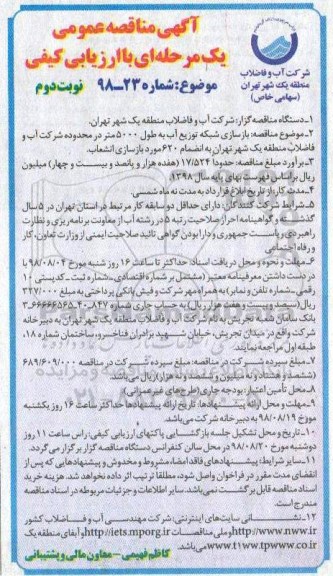 آگهی مناقصه عمومی
یک مرحله‌ای با ارزیابی کیفی
موضوع: شماره ۲۳-۹۸ نوبت دوم
شرکت آب و فاضلاب
منطقه یک شهر تهران
(سهامی خاص)
۱-دستگاه مناقصه گزار: شرکت آب و فاضلاب منطقه یک شهر تهران.
۲-موضوع مناقصه: بازسازی شبکه توزیع آب به طول ۵۰۰۰ متر در محدوده شرکت آب و
فاضلاب منطقه یک شهر تهران به انضمام ۶۲۰ مورد بازسازی انشعاب.
۳-برآورد مبلغ مناقصه: حدوداً ۱۷/۵۲۴ (هفده هزار و پانصد و بیست و چهار) میلیون
ریال براساس فهرست بهای پایه سال ۱۳۹۸.
۴-مدت کار: از تاریخ ابلاغ قرارداد به مدت نه ماه شمسی.
۵-شرایط شرکت کنندگان: دارای حداقل دو سابقه کار مرتبط در استان تهران در ۵ سال
گذشته و گواهینامه احراز صلاحیت رتبه ۵ در رشته آب از معاونت برنامه‌ریزی و نظارت
راهبردی ریاست جمهوری و دارا بودن گواهی تائید صلاحیت ایمنی از وزارت تعاون، کار
و رفاه اجتماعی
۶-مهلت و نحوه و محل دریافت اسناد: حداکثر تا ساعت ۱۶ روز شنبه مورخ ۹۸/۰۸/۰۴ با
در دست داشتن معرفینامه معتبر (مشتمل بر شماره اقتصادی، شماره ثبت، کدپستی ۱۰
رقمی، شماره تلفن و نمابر) به همراه مهر شرکت و فیش بانکی پرداختی به مبلغ ۳۲۷/۰۰۰
ریال (سیصد و بیست و هفت هزار ریال) به حساب جاری شماره
بانک سامان شعبه تجریش به نام شرکت آب و فاضلاب منطقه یک شهر تهران به دبیرخانه
شرکت واقع در میدان تجریش، خیابان شهید برادران فناخسرو، ساختمان شماره ۱۸،
طبقه اول مراجعه نمایند.
۷-مبلغ سپرده شرکت در مناقصه: مبلغ سپرده شرکت در مناقصه ۶۸۹/۶۰۹/۰۰۰
(ششصد و هشتاد و نه میلیون و ششصد و نه هزار) ریال می‌باشد.
۸-محل تأمین اعتبار: بودجه جاری (طرح‌های غیرعمرانی)
۹-مهلت و محل ارائه پیشنهادها: تاریخ ارائه پیشنهادها حداکثر ساعت ۱۶ روز یکشنبه
مورخ ۹۸/۰۸/۱۹ به دبیرخانه شرکت می‌باشد.
۱۰-تاریخ و محل تشکیل جلسه بازگشایی پاکتهای ارزیابی کیفی: راس ساعت ۱۱ روز
دوشنبه مورخ ۹۸/۰۸/۲۰ در محل سالن کنفرانس دستگاه مناقصه گزار برگزار می‌گردد.
۱۱-سایر شرایط: پیشنهادهای فاقد امضاء، مشروط و مخدوش و پیشنهادهایی که پس از
انقضای مدت مقرر در فراخوان واصل شود، مطلقا ترتیب اثر داده نخواهد شد. هزینه خرید
اسناد مناقصه قابل برگشت نمی‌باشد. سایر اطلاعات و جزئیات مربوطه در اسناد مناقصه
مندرج است.
۱۲-نشانی سایت‌های اینترنتی: شرکت مهندسی آب و فاضلاب کشور
http://www.nww.ir و ملی مناقصات http://iets.mporg.ir و آبفای منطقه یک
www.t1ww.tpww.co.ir می‌باشد.
کاظم فهیمی - معاون مالی و پشتیبانی